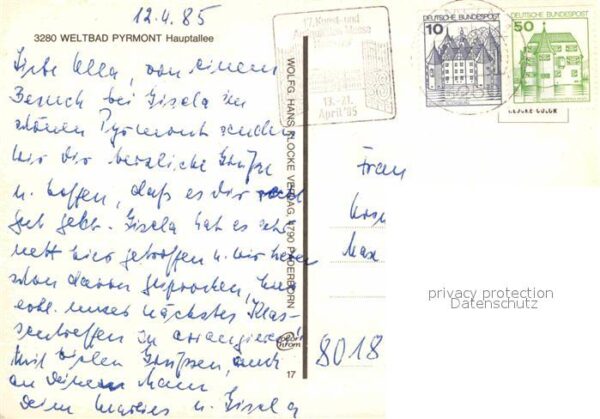 12.4.85
3280 WELTBAD PYRMONT Hauptallee
Liebe Ulla, von einem
Besuch bei Gisela im
schönen Pyrmont senden
wir dir herzliche Grüße
u. hoffen, daß es dir
gut geht. Gisela hat es sehr
nett hier getroffen u. wir haben
schon davon gesprochen, hier
evtl. unser nächstes Klas-
sentreffen zu arrangieren!
Mit vielen Grüßen, auch
an deinen Mann
Deine Marlies u. Gisela
WOLFG. HANS KLOCKE VERLAG, 4790 PADERBORN
color chrom
17
17. Kunst- und
Antiquitäten Messe
Hannover
13.-21.
April '85
DEUTSCHE BUNDESPOST
10
DEUTSCHE BUNDESPOST
50
KLOCKE-COLOR
Frau
8018
privacy protection
Datenschutz